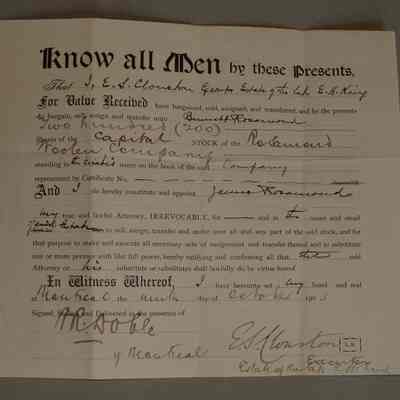 Know all Men by these Presents,
That I, E. S. Clouston Estate of the late E. H. King
For Value Received have bargained, sold, assigned and transferred, and by the presents
do bargain, sell, assign and transfer unto Bennett Rosamond
Two hundred (200)
Shares of the Capital STOCK of the Rosamond
Woolen Company
standing in the name on the book of the said Company
represented by Certificate No.
And I do hereby constitute and appoint James Rosamond
my true and lawful Attorney, IRREVOCABLY, for and in the name and stead
to sell, assign, transfer and make over all or any part of the said stock, and for
that purpose to make and execute all necessary acts of assignment and transfer thereof and to substitute
one or more persons with like full power, hereby ratifying and confirming all that said
Attorney or his substitute or substitutes shall lawfully do by virtue hereof.
In Witness Whereof, I have hereunto set my hand and seal
at Montreal the ninth day of October 190
Signed, Sealed and Delivered in the presence of
of Montreal
E S Clouston L.S.
Executor
Estate of